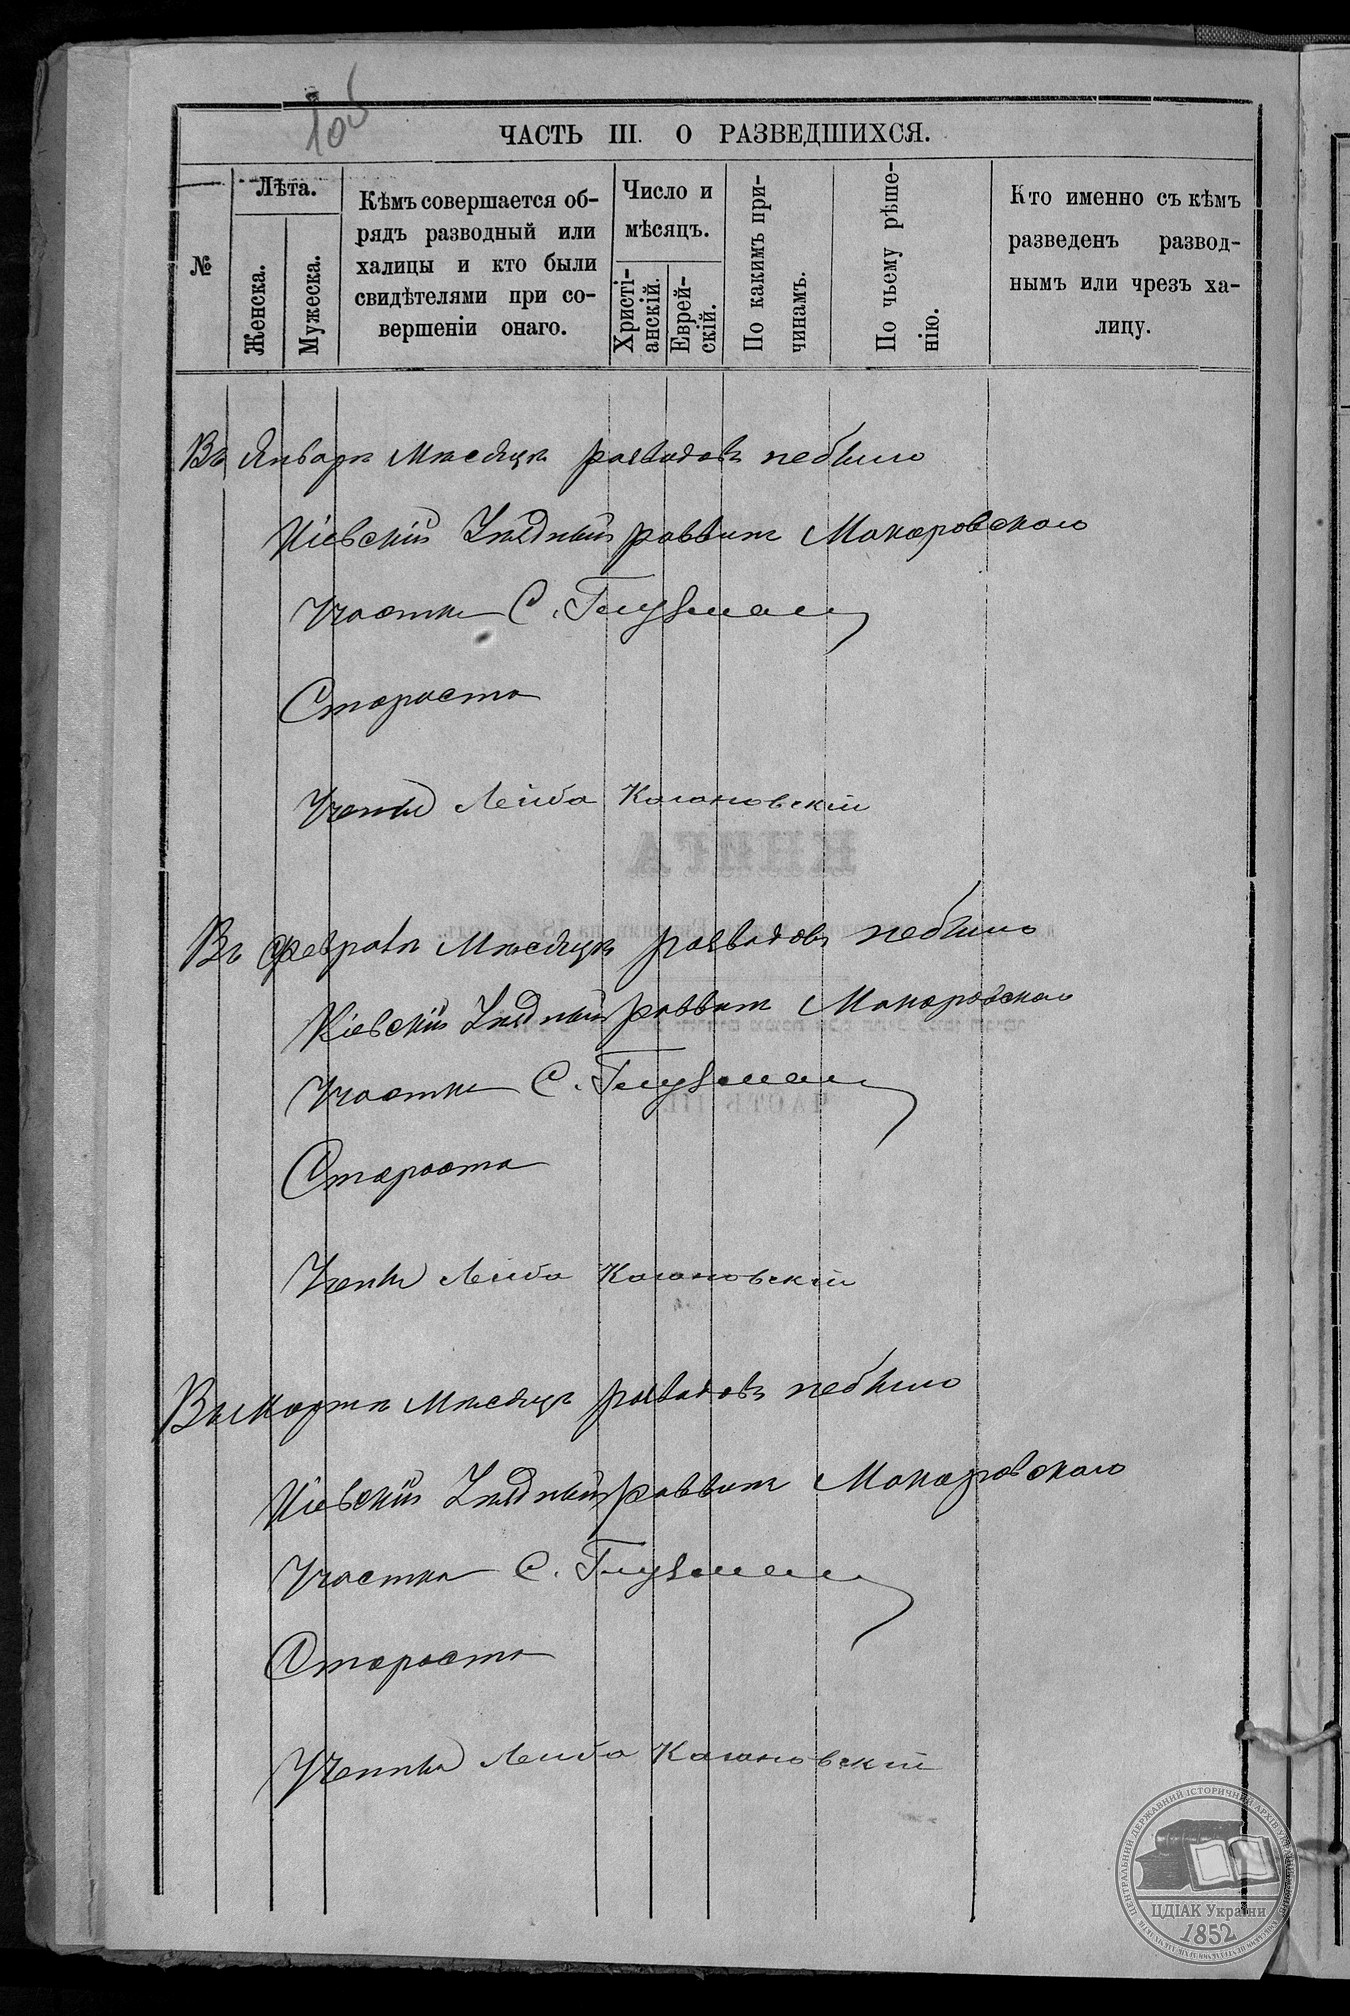 106
ЧАСТЬ III. О РАЗВЕДШИХСЯ.
№
Лѣта.
Женска.
Мужеска.
Кѣмъ совершается об-
рядъ разводный или
халицы и кто были
свидѣтелями при со-
вершеніи онаго.
Число и
мѣсяцъ.
Христі-
анскій.
Еврей-
скій.
По какимъ при-
чинамъ.
По чьему рѣше-
нію.
Кто именно съ кѣмъ
разведенъ развод-
нымъ или чрезъ ха-
лицу.
Въ Январѣ Мѣсяцѣ разводовъ небыло
Кіевскій Уѣздный раввинъ Макаровскаго
Участка С. Глузман
Староста
Ученый Лейба Кагановскій
Въ Февралѣ Мѣсяцѣ разводовъ небыло
Кіевскій Уѣздный раввинъ Макаровскаго
Участка С. Глузман
Староста
Ученый Лейба Кагановскій
Въ мартѣ Мѣсяцѣ разводовъ небыло
Кіевскій Уѣздный раввинъ Макаровскаго
Участка С. Глузман
Староста
Ученый Лейба Кагановскій
КНИГА
ЧАСТЬ III
ЦЕНТРАЛЬНИЙ ДЕРЖАВНИЙ ІСТОРИЧНИЙ АРХІВ УКРАЇНИ
ЦДІАК України
1852